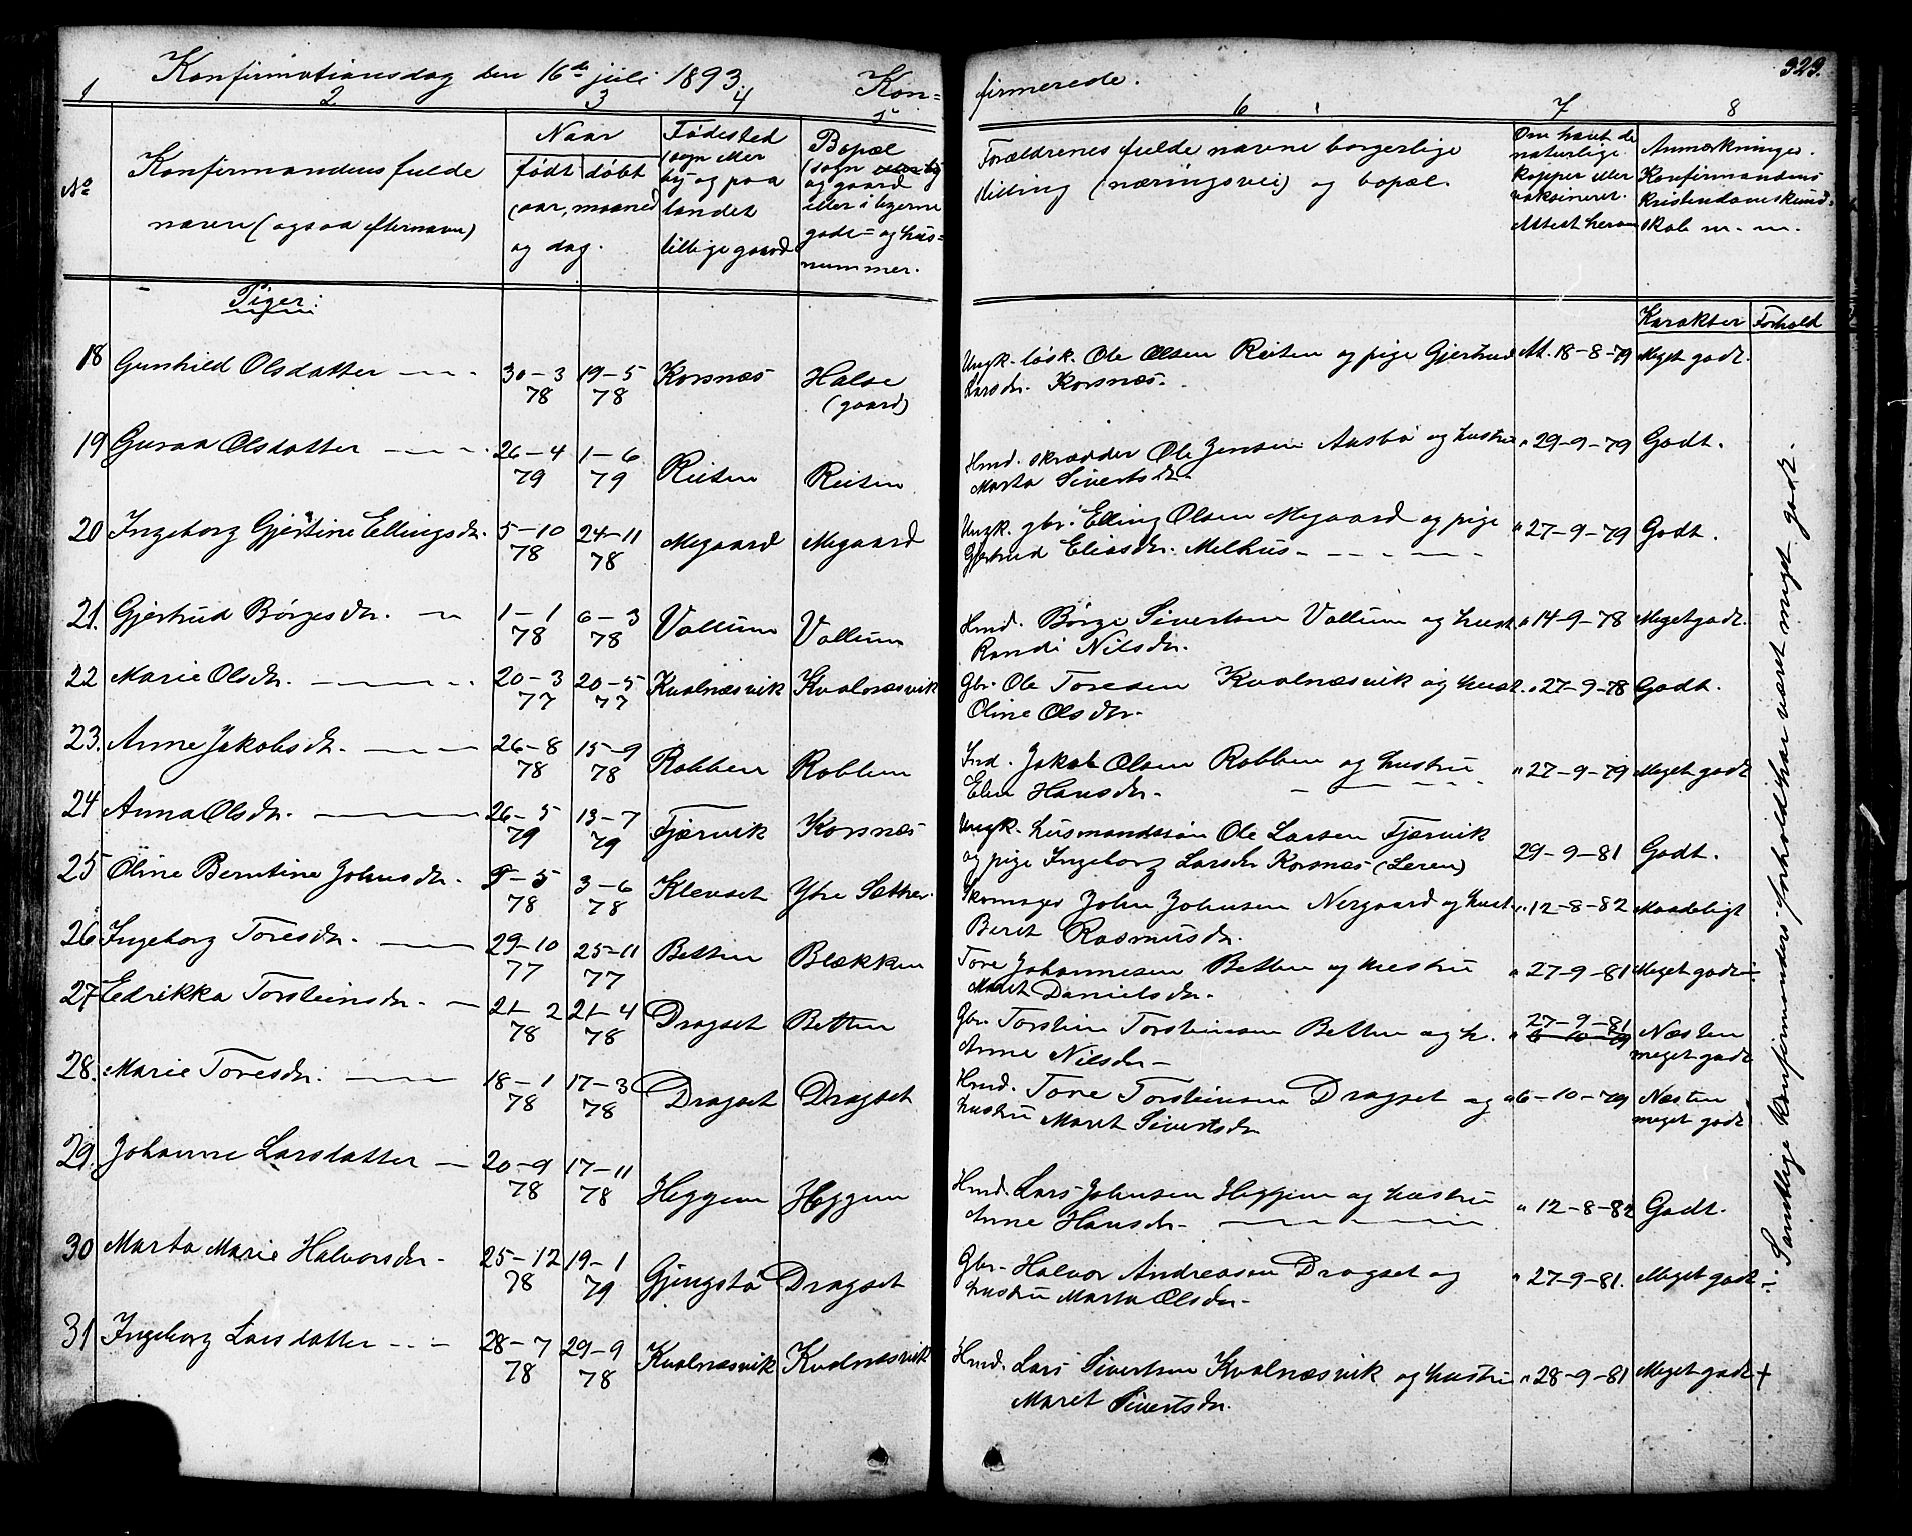 Konfirmationsdag den 16de juli 1893. Konfirmerede. 323.
1 2 3 4 5 6 7 8
No
Konfirmandens fulde
navn (ogsaa efternavn)
Naar
født døbt
(aar, maaned
og dag.
Fødested
(sogn eller
by og paa
landet
tillige gaard
Bopæl
(sogn
og gaard
eller i byerne
gade= og hus=
nummer.
Forældrenes fulde navne borgerlige
stilling (næringsvei) og bopæl.
Om havt de
naturlige
kopper eller
vaksineret.
Attest herom
Anmærkninger.
Konfirmandens
kristendomskund-
skab m. m.
Karakter Forhold
Piger:
18 Gunhild Olsdatter 30-3 78 19-5 78 Korsnæs Halse (gaard) Ungk. løsk. Ole Olsen Reiten og pige Gjertrud At. 18-8-79 Meget godt.
Larsdr. Korsnæs.
19 Guraa Olsdatter 26-4 79 1-6 79 Reiten Reiten Hmd. skrædder Ole Jensen Aasbø og hustru " 29-9-79 Godt.
Marta Sivertsdr.
20 Ingeborg Gjertine Ellingsdr. 5-10 78 24-11 78 Megaard Megaard Ungk. gbr. Elling Olsen Megaard og pige " 27-9-79 Godt.
Gjertrud Eliasdr. Melhus
21. Gjertrud Børgesdr. 1-1 78 6-3 78 Vollum Vollum Hmd. Børge Sivertsen Vollum og hust. " 14-9-78 Meget godt.
Randi Nilsdr.
22 Marie Olsdr. 20-3 77 20-5 77 Kvalnæsvik Kvalnæsvik Gbr. Ole Toresen Kvalnæsvik og hust. " 27-9-78 Godt.
Oline Olsdr.
23. Anne Jakobsdr. 26-8 78 15-9 78 Robben Robben Ind. Jakob Olsen Robben og hustru " 27-9-79 Meget godt
Elen Hansdr.
24 Anna Olsdr. 26-5 79 13-7 79 Fjærvik Korsnæs Ungk. husmandssøn Ole Larsen Fjærvik
og pige Ingeborg Larsdr Korsnæs (Leren) 29-9-81 Godt.
25 Oline Berntine Johnsdr. 9-5 78 3-6 78 Klevset Ytre Sættre. Skomager John Johnsen Nergaard og hust. " 12-8-82 Maadeligt
Beret Rasmusdr.
26 Ingeborg Toresdr. 29-10 77 25-11 77 Betten Blækken Tore Johannesen Betten og hustru " 27-9-81 Meget godt
Maret Danielsdr.
27 Edrikka Torsteinsdr. 21-2 78 21-4 78 Dragset Betten Gbr. Torstein Torsteinsen Betten og h. " 27-9-81 6-10-79 Næsten
Anne Nilsdr meget godt
28. Marie Toresdr. 18-1 78 17-3 78 Dragset Dragset Hmd. Tore Torsteinsen Dragset og " 6-10-79 Næsten
hustru Maret Sivertsdr meget godt
29. Johanne Larsdatter 20-9 78 17-11 78 Heggem Heggem Hmd. Lars Johnsen Heggem og hustru " 12-8-82 Godt.
Anne Hansdr
30 Marta Marie Halvorsdr. 25-12 78 19-1 79 Gjengstø Dragset Gbr. Halvor Andreasen Dragset og " 27-9-81. Meget godt
hustru Marta Olsdr.
31 Ingeborg Larsdatter 28-7 78 29-9 78 Kvalnæsvik Kvalnæsvik Hmd. Lars Sivertsen Kvalnæsvik og hustru " 28-9-81 Meget godt +
Maret Sivertsdr.
Samtlige konfirmanders forhold har været meget godt.